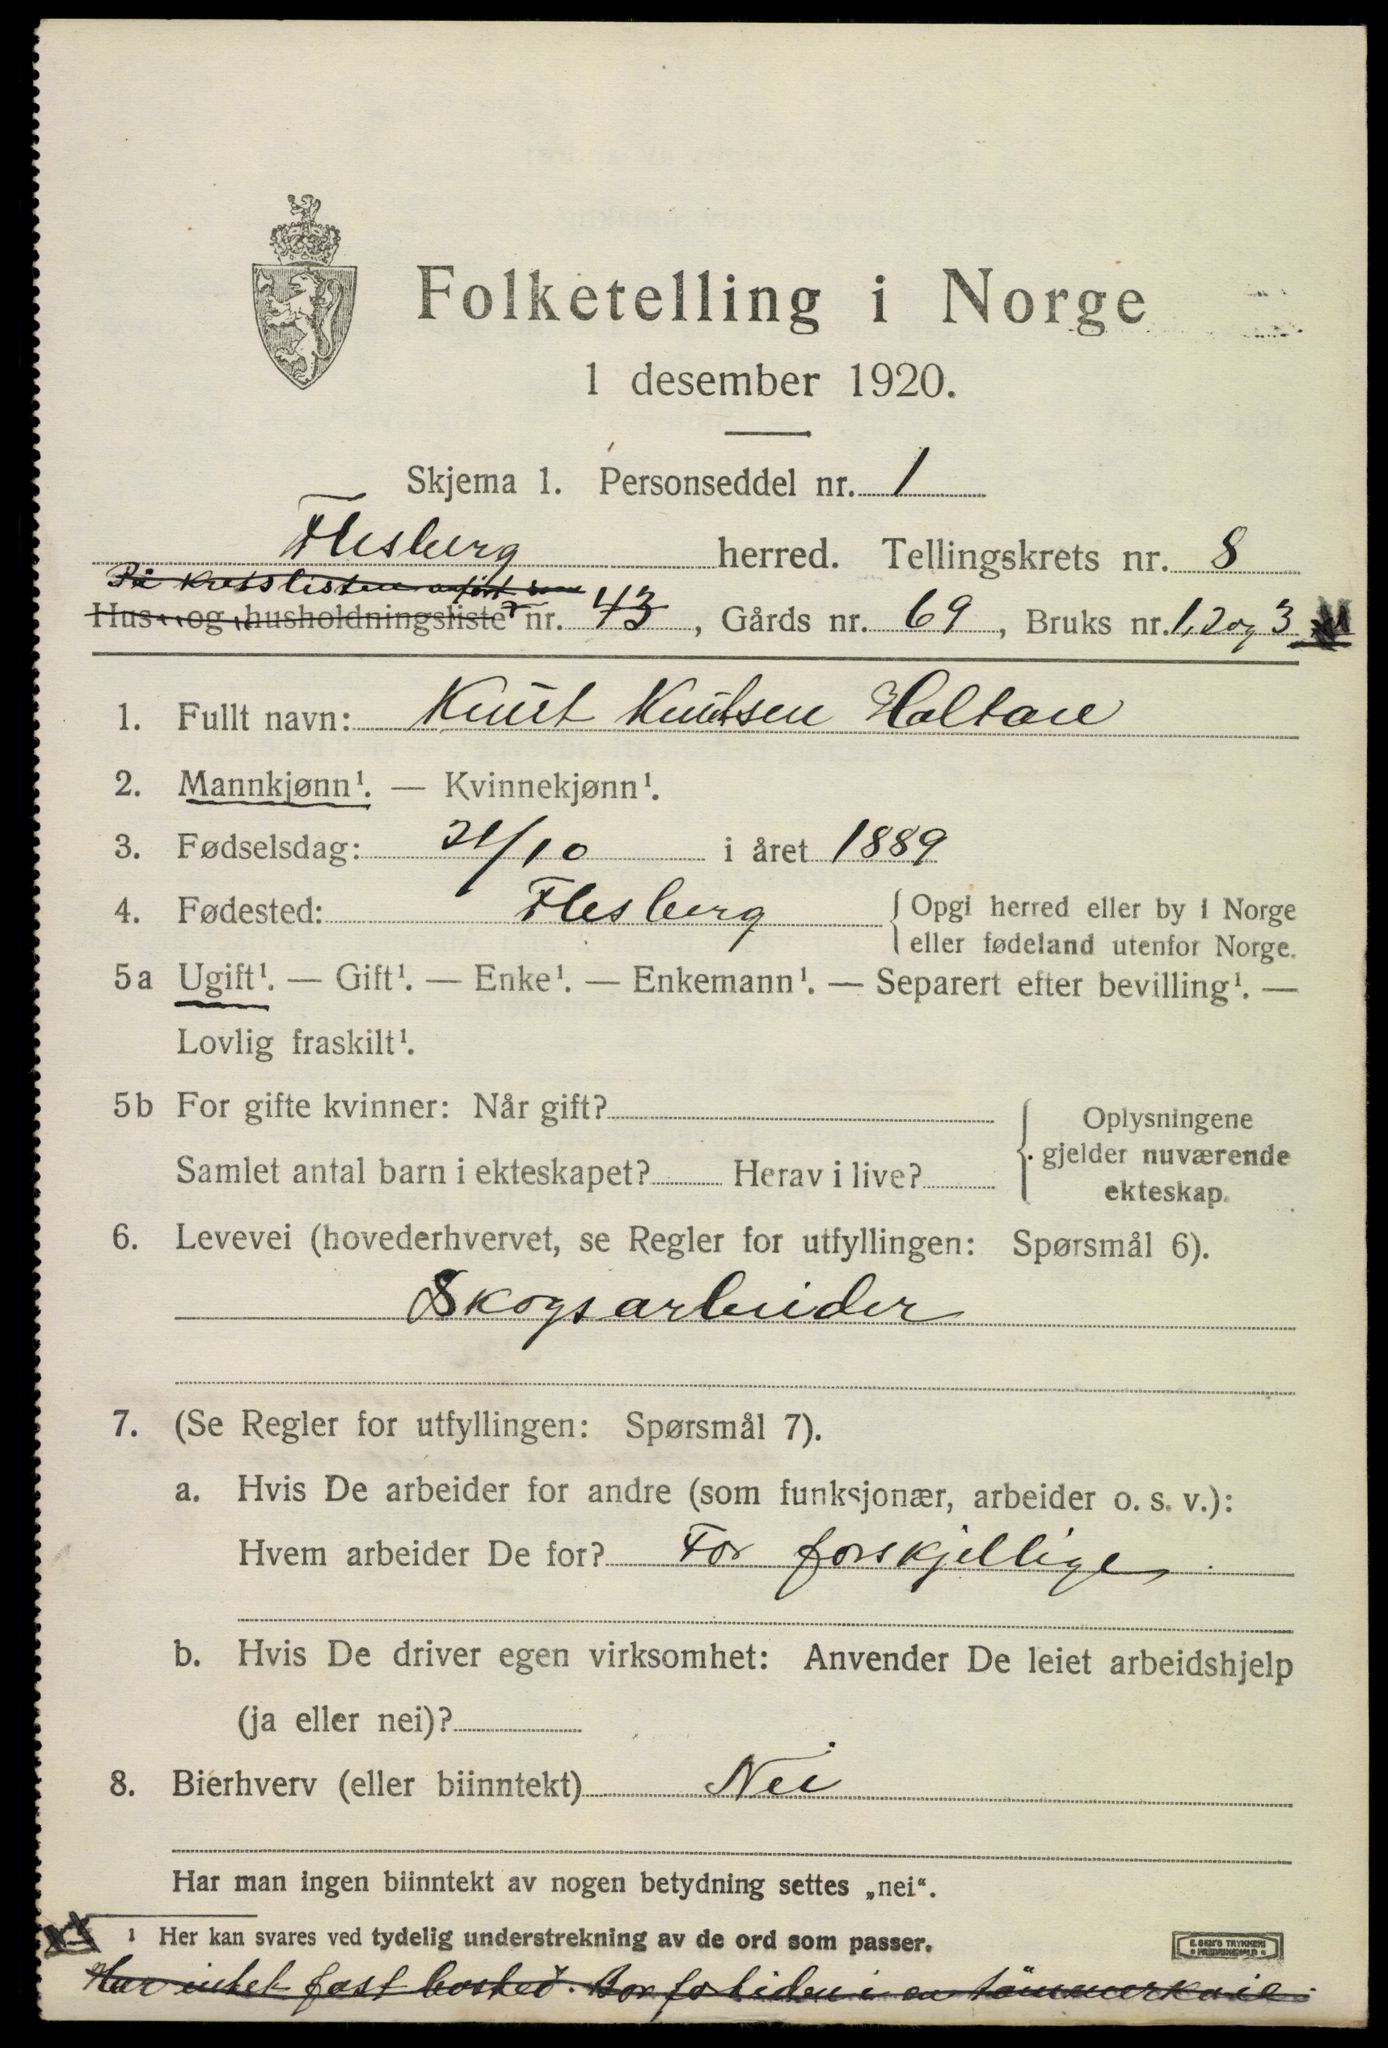 Folketelling i Norge
1 desember 1920.
Skjema 1. Personseddel nr. 1
Flesberg herred. Tellingskrets nr. 8
På kretslisten opført som
Hus- og husholdningsliste nr. 43, Gårds nr. 69, Bruks nr. 1, 2 og 3
1. Fullt navn: Knut Knutsen Haltare
2. Mannkjønn¹. — Kvinnekjønn¹.
3. Fødselsdag: 21/10 i året 1889
4. Fødested: Flesberg { Opgi herred eller by i Norge
eller fødeland utenfor Norge.
5a Ugift¹. — Gift¹. — Enke¹. — Enkemann¹. — Separert efter bevilling¹. —
Lovlig fraskilt¹.
5b For gifte kvinner: Når gift? Oplysningene
gjelder nuværende
Samlet antal barn i ekteskapet? Herav i live?
ekteskap.
6. Levevei (hovederhvervet, se Regler for utfyllingen: Spørsmål 6).
Skogsarbeider
7. (Se Regler for utfyllingen: Spørsmål 7).
a. Hvis De arbeider for andre (som funksjonær, arbeider o. s. v.):
Hvem arbeider De for? For forskjellige
b. Hvis De driver egen virksomhet: Anvender De leiet arbeidshjelp
(ja eller nei)?
8. Bierhverv (eller biinntekt) Nei
Har man ingen biinntekt av nogen betydning settes „nei“.
¹ Her kan svares ved tydelig understrekning av de ord som passer.
E. SEM'S TRYKKERI
FREDRIKSHALD
Har intet fast bosted. Bor for tiden i en tömmerkoie.